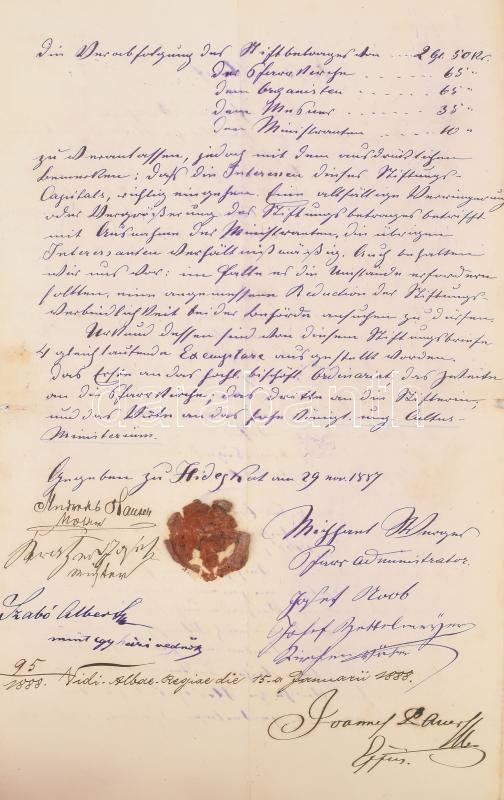 die Verabfolgung des Stiftbetrages von .... 2 fl. 50 Kr.
der Pfarrkirche ....... 65 "
dem Organisten ....... 65 "
dem Mesner ....... 35 "
den Ministranten ....... 10 "
zu veranlassen, jedoch mit dem ausdrücklichen
Bemerken: daß die Interessen dieses Stiftungs-
Capitals, richtig eingehen. Eine allfällige Verringerung
oder Vergrößerung des Stiftungsbetrages betrifft
mit Ausnahme der Ministranten, die übrigen
Interessenten verhältnißmäßig. Auch behalten
wir uns vor: im Falle es die Umstände erfordern
sollten, eine angemessene Reduction der Stiftungs-
verbindlichkeit bei der Behörde ansuchen zu dürfen.
Urkund dessen sind von diesem Stiftungsbriefe
4 gleichlautende Exemplare ausgestellt worden.
Das Erste an das hochl. bischöfl. Ordinariat, das Zweite
an die Pfarrkirche, das dritte an die Stifterin,
und das Vierte an das hohe königl. ung. Cultus-
Ministerium.
Gegeben zu Hideskut am 29 nov. 1887
Andreas Hauser
Michael Werger
Pfarr Administrator.
Josef Noob
Josef
Kirchenväter
Szabó Albert
mint egyházi vednök
darabanth
95/1888. Vidi. Albae-Regiae die 15-a Januarii 1888.
Joannes Pauer
Eppus.